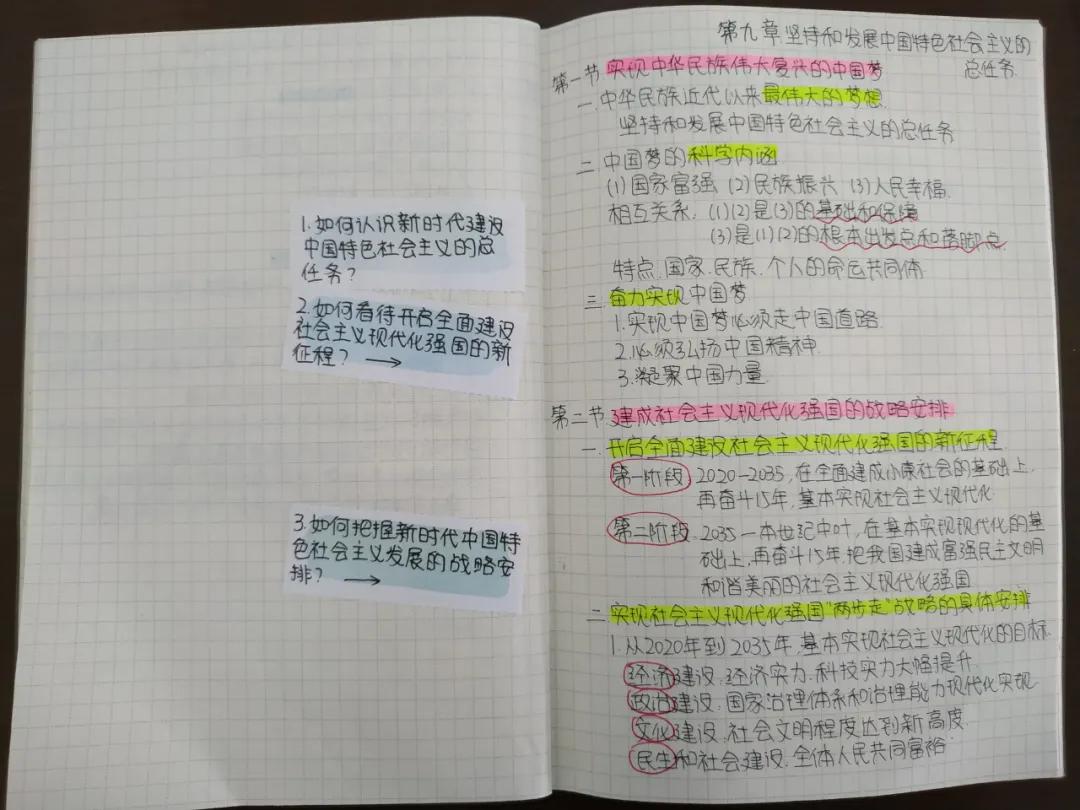 1.如何认识新时代建设
中国特色社会主义的总
任务?
2.如何看待开启全面建设
社会主义现代化强国的新
征程? →
3.如何把握新时代中国特
色社会主义发展的战略安
排? →
第九章坚持和发展中国特色社会主义的
总任务
第一节 实现中华民族伟大复兴的中国梦
一.中华民族近代以来最伟大的梦想
坚持和发展中国特色社会主义的总任务
二 中国梦的科学内涵
(1)国家富强 (2)民族振兴 (3)人民幸福.
相互关系. (1)(2)是(3)的基础和保障
(3)是(1)(2)的根本出发点和落脚点
特点.国家.民族.个人的命运共同体
三.奋力实现中国梦
1.实现中国梦必须走中国道路.
2.必须弘扬中国精神.
3.凝聚中国力量
第二节.建成社会主义现代化强国的战略安排
一.开启全面建设社会主义现代化强国的新征程.
第一阶段 2020-2035,在全面建成小康社会的基础上,
再奋斗15年,基本实现社会主义现代化
第二阶段.2035—本世纪中叶,在基本实现现代化的基
础上,再奋斗15年.把我国建成富强民主文明
和谐美丽的社会主义现代化强国
二.实现社会主义现代化强国"两步走"战略的具体安排
1.从2020年到2035年,基本实现社会主义现代化的目标.
经济建设.经济实力.科技实力大幅提升.
政治建设.国家治理体系和治理能力现代化实现
文化建设.社会文明程度达到新高度.
民生和社会建设.全体人民共同富裕